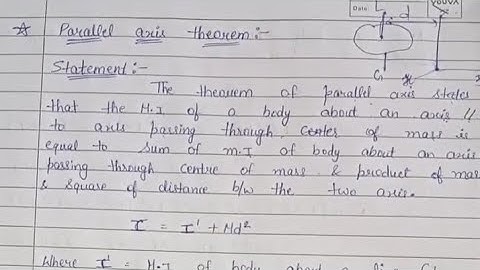 Date
YOUVA
d
☆ Parallel axis theorem:-
G
Statement :-
The theorem of parallel axis states
that the M.I of a body about an axis ||
to axis passing through center of mass is
equal to sum of M.I of body about an axis
passing through centre of mass & product of mas
& square of distance b/w the two axis.
I = I' + Md²
Where I' = M.I of body about a